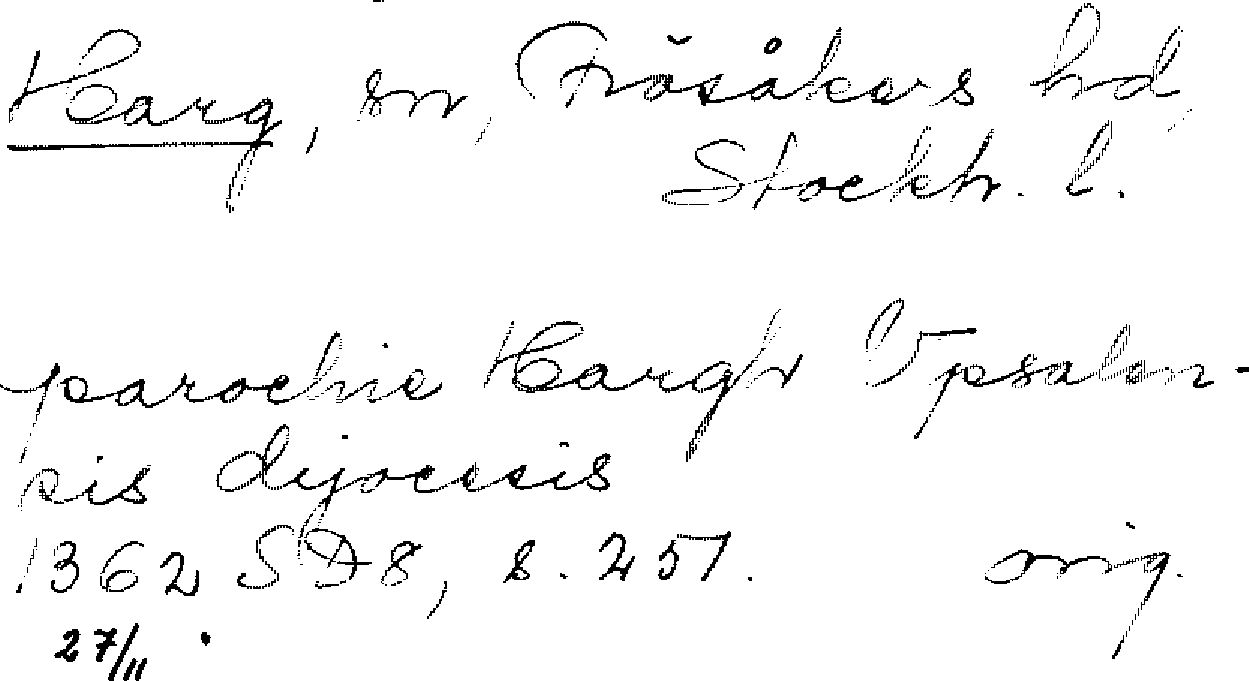 Harg, sn, Frösåkers hd,
Stockh. l.
parochie Hargh Vpsalen-
sis dyocesis
1362 SD8, s. 251.   orig.
27/11